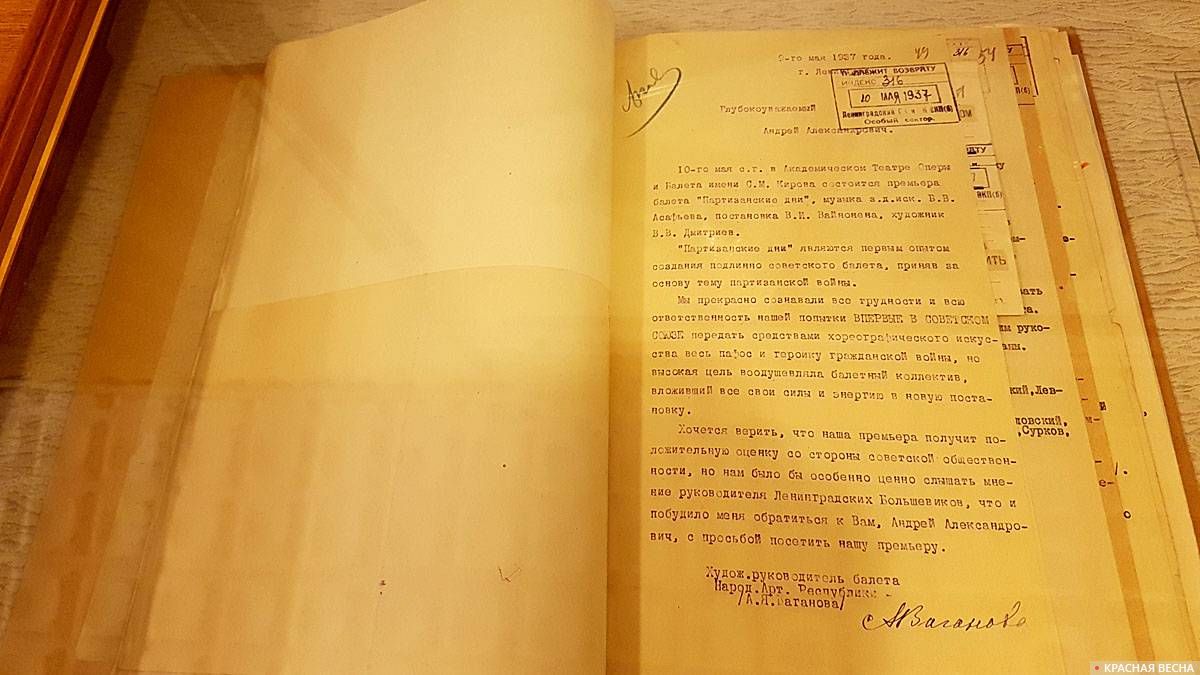 9-го мая 1937 года.
49 316 54
г. Лен
ПОДЛЕЖИТ ВОЗВРАТУ
ИНДЕКС 316
10 МАЯ 1937
Ленинградский ВКП(б)
Особый сектор.
Глубокоуважаемый
Андрей Александрович.
10-го мая с.г. в Академическом Театре Оперы
и Балета имени С.М. Кирова состоится премьера
балета "Партизанские дни", музыка з.д.иск. Б.В.
Асафьева, постановка В.И. Вайнонена, художник
В.В. Дмитриев.
"Партизанские дни" являются первым опытом
создания подлинно советского балета, приняв за
основу тему партизанской войны.
Мы прекрасно сознавали все трудности и всю
ответственность нашей попытки ВПЕРВЫЕ В СОВЕТСКОМ
СОЮЗЕ передать средствами хореографического искус-
ства весь пафос и героику гражданской войны, но
высокая цель воодушевляла балетный коллектив,
вложивший все свои силы и энергию в новую поста-
новку.
Хочется верить, что наша премьера получит по-
ложительную оценку со стороны советской обществен-
ности, но нам было бы особенно ценно слышать мне-
ние руководителя Ленинградских Большевиков, что и
побудило меня обратиться к Вам, Андрей Александро-
вич, с просьбой посетить нашу премьеру.
Худож.руководитель балета
Народ.Арт. Республики -
/А.Я.Ваганова/
АВаганова
им руко-
кий,Лев-
ловский,
,Сурков,
КРАСНАЯ ВЕСНА